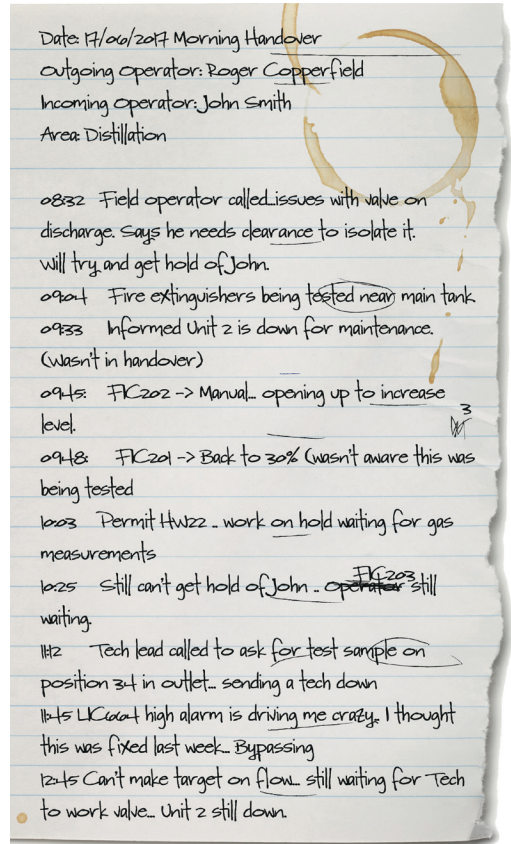 Date: 17/06/2017 Morning Handover
Outgoing Operator: Roger Copperfield
Incoming Operator: John Smith
Area: Distillation
0832 Field operator called...issues with valve on
discharge. Says he needs clearance to isolate it.
Will try and get hold of John.
0904 Fire extinguishers being tested near main tank
0933 Informed Unit 2 is down for maintenance.
(wasn't in handover)
0945: FIC202 -> Manual... opening up to increase
level.
3
0948: FIC201 -> Back to 30% (wasn't aware this was
being tested
10:03 Permit HW22 .. work on hold waiting for gas
measurements
FIC203
10:25 Still can't get hold of John .. operator still
waiting.
11:12 Tech lead called to ask for test sample on
position 34 in outlet... sending a tech down
11:45 LIC664 high alarm is driving me crazy. I thought
this was fixed last week... Bypassing
12:45 Can't make target on flow... still waiting for Tech
to work valve... Unit 2 still down.